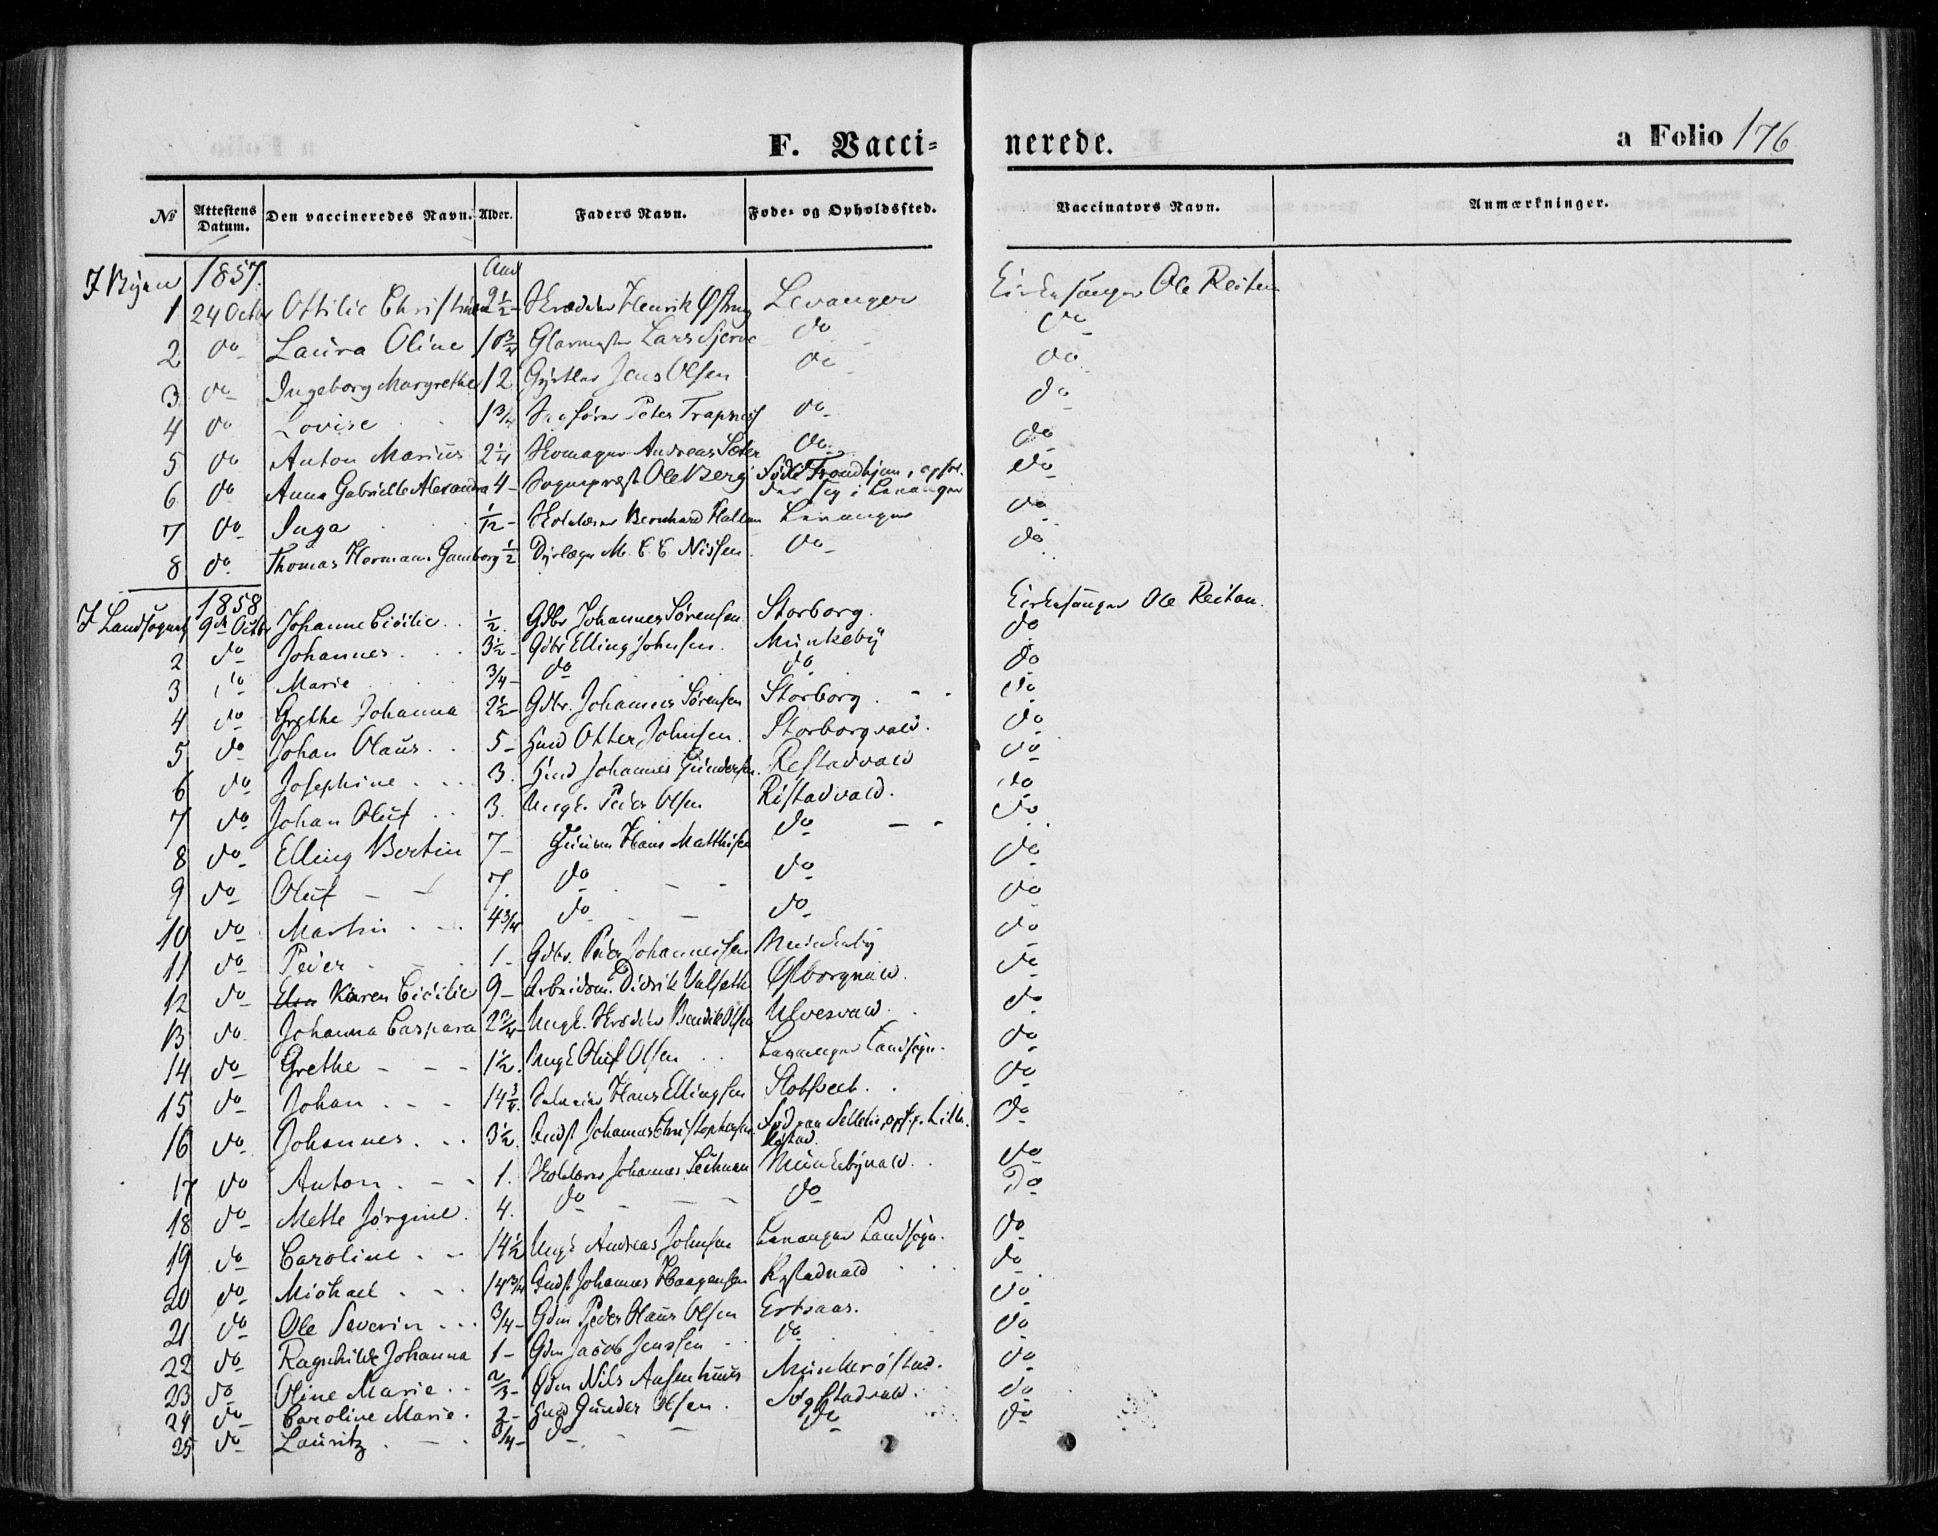 F. Vacci= nerede. a Folio 176
№ Attestens Datum. Den vaccineredes Navn. Alder. Faders Navn. Føde= og Opholdssted. Vaccinators Navn. Anmærkninger.
I Byen 1857. Aar
1 24 Octbr Ottilie Christine 9½ Skræder Henrik Levanger Kirkesanger Ole Reitan
2 do Laura Oline 10¾ Glarmester Lars Sjervе do do
3 do Ingeborg Margrethe 12 Gjørtler Jens Olsen do do
4 do Lovise 1¾ Peter do do
5 do Anton Marius 2¼ Skomager Andreas do do
6 do Anna Gabrielle Alexandra 4 Sognepræst Ole Berg født Trondhjem, i Levanger do
7 do Inga 1/12 Skolelærer Bernhard Hallan Levanger do
8 do Thomas Hermann Gamborg ½ Dyrlæge M. C. C. Nissen do do
I Landsognet 1858
9de Octbr Johanne Cicilie ½ Gdbr Johannes Sørensen Storborg Kirkesanger Ole Reitan.
2 do Johannes 3½ Gdbr Elling Johnsen Munkeby do
3 do Marie ¾ do do do
4 do Grethe Johanna 2½ Gdbr. Johannes Sørensen Storborg do
5 do Johan Olaus 5 Husmd Otter Johnsen. Storborgvald. do
6 do Josephine 3. Husmd Johannes Gundersen. Restadvald do
7 do Johan Oluf 3. Ungk. Peder Olsen Ristadvald. do
8 do Elling Bertin 7 Hans Matthisen do do
9 do Oluf 7. do do do
10 do Martin 4¾ do do do
11 do Peder 1 Gdbr. Peder Johannessen Munkeby do
12 do Karen Cicilie 9 Arbeidsm. Didrik Valseth Østborgvald. do
13 do Johanna Caspara 2¾ Ungk. Skræder Bendik Olsen Ulvesvald do
14 do Grethe 1½. Ungk Oluf Olsen Levanger Landsogn. do
15 do Johan 14¾ Hans Ellingsen do
16 do Johannes 3½. Indst Johannes Christophersen do
17 do Anton 1. Skolelærer Johannes Munkebyvald. do
18 do Mette Jørgine. 4. do do Do
19 do Caroline 14½ Ungk Andreas Johnsen Levanger Landsogn. do
20 do Michael 14¾ Indst Johannes Haagensen Rستadvald do
21 do Ole Severin ¾ Gdm Peder Olaus Olsen Ertsaas. do
22 do Ragnhilde Johanna 1 Gdm Jacob Jenssen do do
23 do Oline Marie ⅔ Gdm Nils Munkrøstad. do
24 do Caroline Marie. 2 Husmd Gunder Olsen. do
25 do Lauritz ¾ do do do